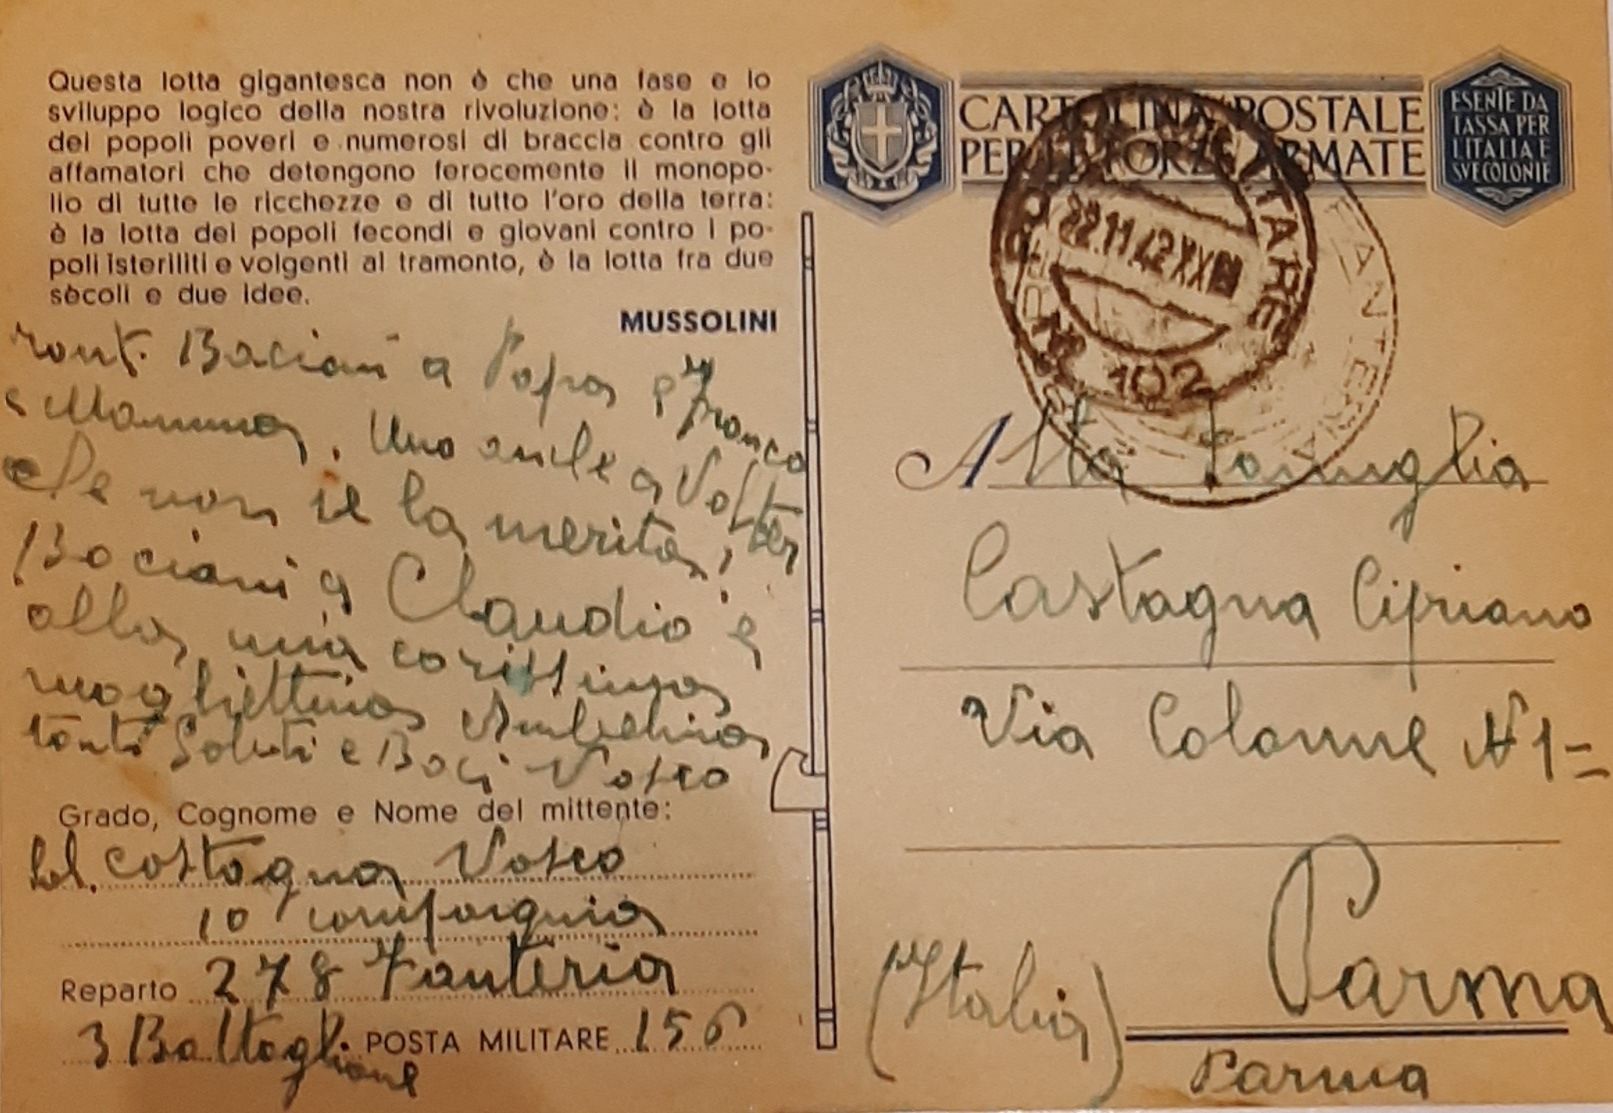 Questa lotta gigantesca non è che una fase e lo
sviluppo logico della nostra rivoluzione: è la lotta
dei popoli poveri e numerosi di braccia contro gli
affamatori che detengono ferocemente il monopo-
lio di tutte le ricchezze e di tutto l'oro della terra:
è la lotta dei popoli fecondi e giovani contro i po-
poli isteriliti e volgenti al tramonto, è la lotta fra due
sècoli e due idee.
MUSSOLINI
Baciani a Papa e Franco
e Mamma, Uno anche a Volter
che non se la merita,
Baciani a Claudio e
alla mia carissima
mogliettina
tanti Saluti e Baci Vasco
Grado, Cognome e Nome del mittente:
Sol. Castagna Vasco
10 compagnia
Reparto 278 Fanteria
3 Battaglione POSTA MILITARE 156
CARTOLINA POSTALE
PER LE FORZE ARMATE
ESENTE DA
TASSA PER
L'ITALIA E
SVE COLONIE
22.11.42 XXI
N° 102
Alla Famiglia
Castagna Cipriano
Via Colonne N 1=
Parma
(Italia)
Parma